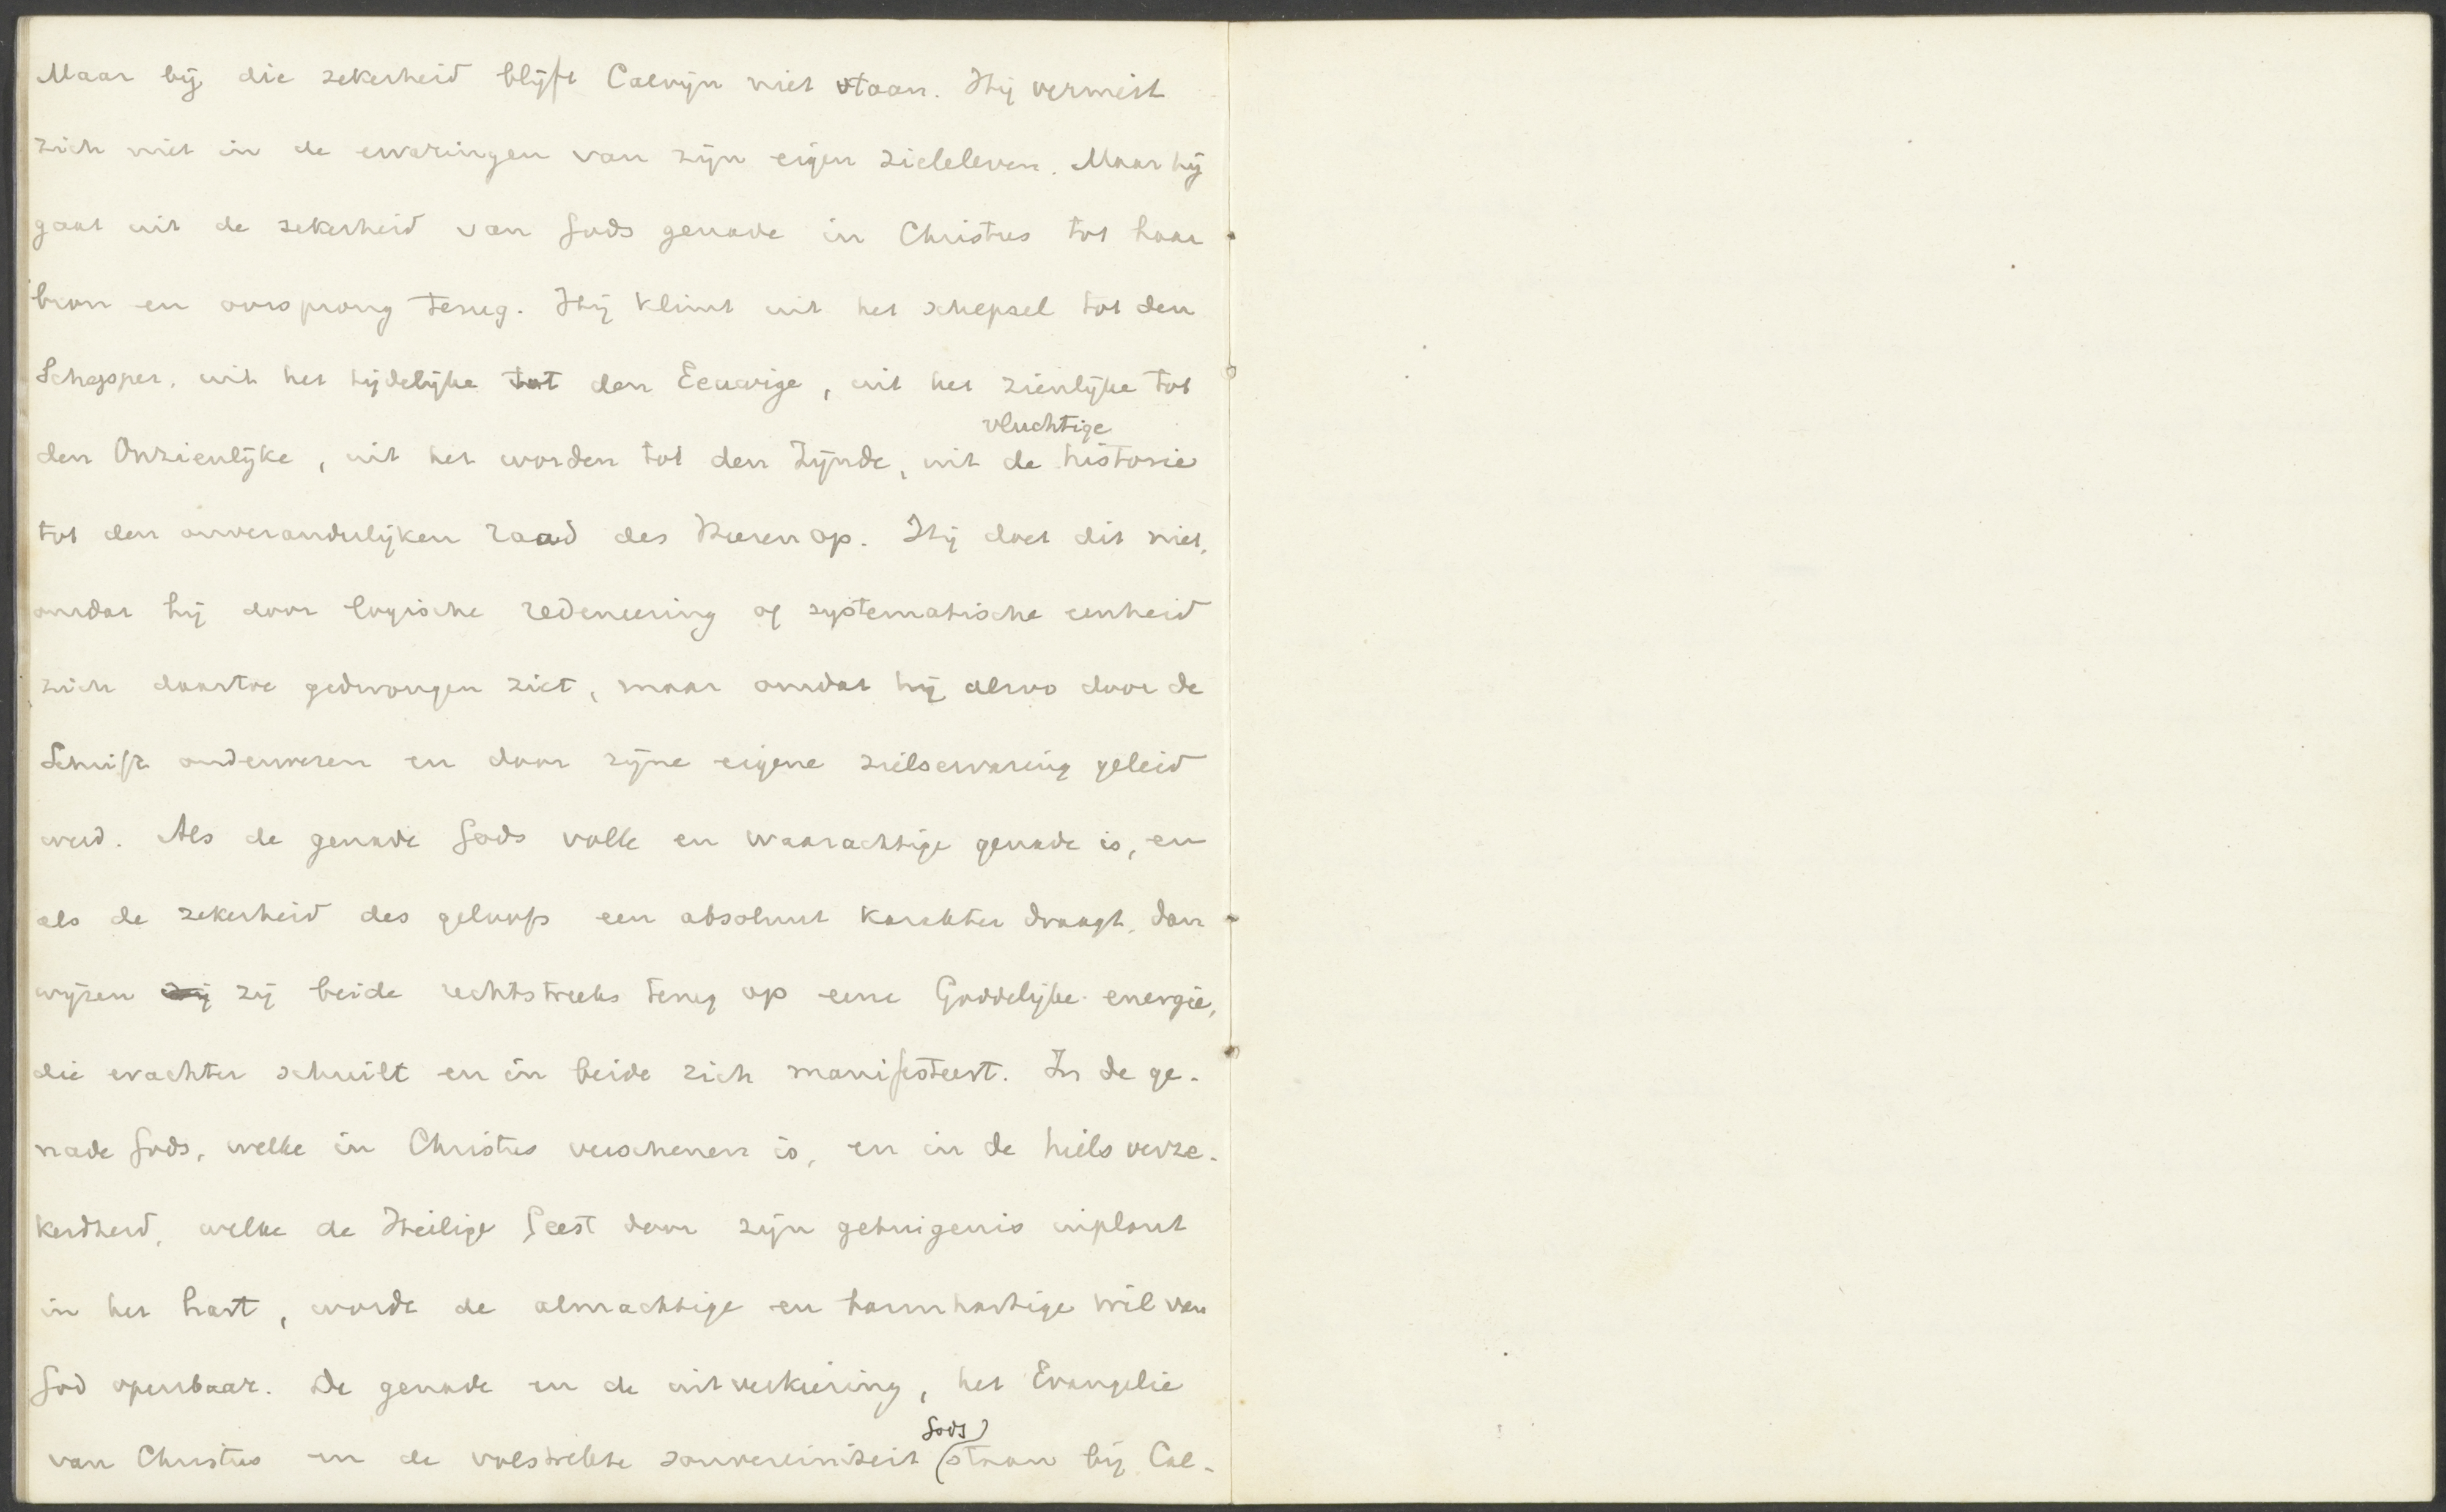 Maar bij die zekerheid blijft Calvijn niet staan. Hij vermeit
zich niet in de ervaringen van zijn eigen zieleleven. Maar hij
gaat uit de zekerheid van Gods genade in Christus tot haar
bron en oorsprong terug. Hij klimt uit het schepsel tot den
Schepper, uit het tijdelijke tot den Eeuwige, uit het zienlijke tot
vluchtige
den Onzienlijke, uit het worden tot den Zijnde, uit de historie
tot den onveranderlijken raad des Heeren op. Hij doet dit niet,
omdat hij door logische redeneering of systematische eenheid
zich daartoe gedwongen ziet, maar omdat hij alzoo door de
Schrift onderwezen en door zijne eigene zielservaring geleid
werd. Als de genade Gods volle en waarachtige genade is, en
als de zekerheid des geloofs een absoluut karakter draagt, dan
wijzen zij zij beide rechtstreeks terug op eene Goddelijke energie,
die erachter schuilt en in beide zich manifesteert. In de ge-
nade Gods, welke in Christus verschenen is, en in de heilsverze-
kerdheid, welke de Heilige Geest door zijn getuigenis inplant
in het hart, wordt de almachtige en barmhartige wil van
God openbaar. De genade en de uitverkiezing, het Evangelie
Gods
van Christus en de volstrekte souvereiniteit staan bij Cal-